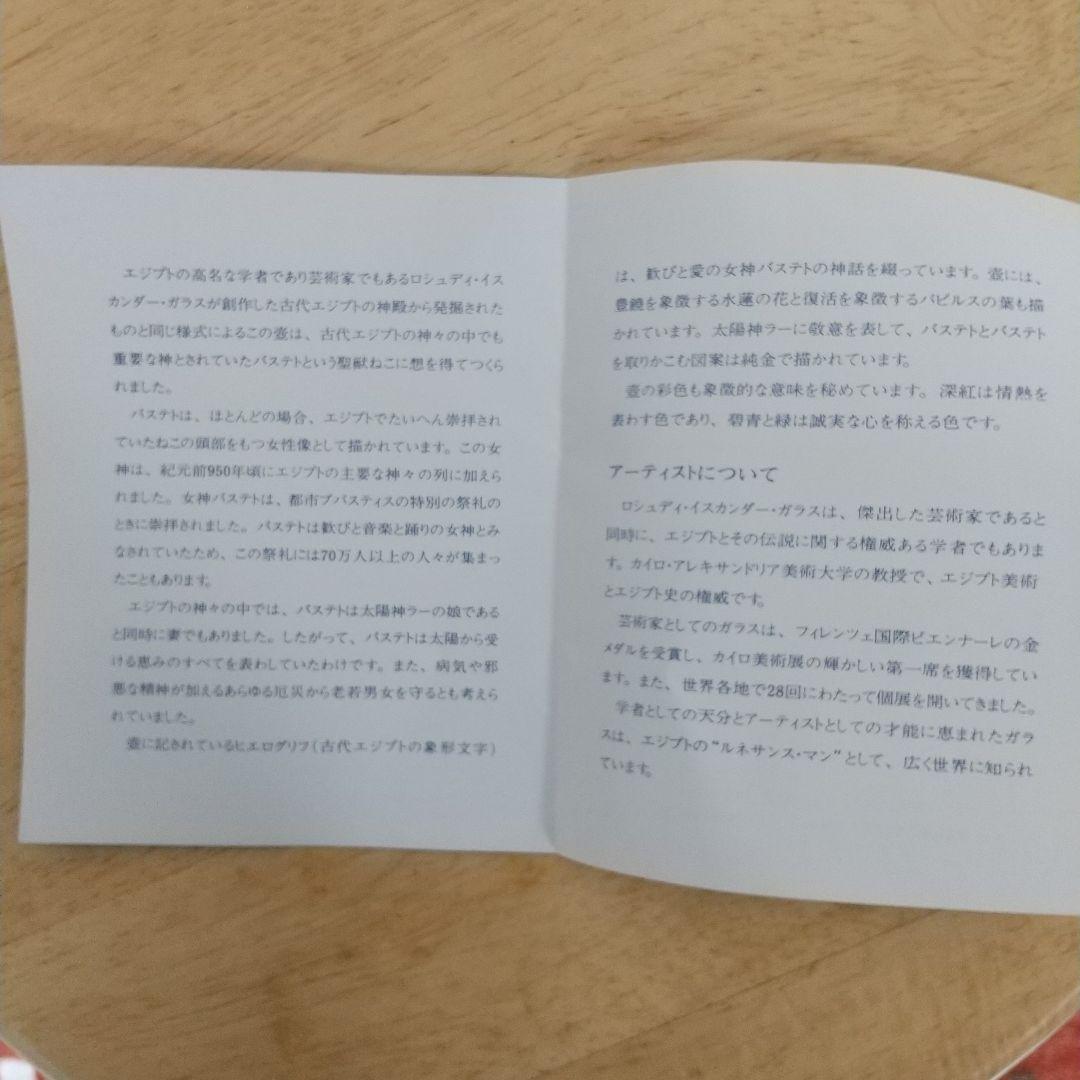 エジプトの高名な学者であり芸術家でもあるロシュディ・イス
カンダー・ガラスが創作した古代エジプトの神殿から発掘された
ものと同じ様式によるこの壺は、古代エジプトの神々の中でも
重要な神とされていたバステトという聖獣ねこに想を得てつくら
れました。
バステトは、ほとんどの場合、エジプトでたいへん崇拝され
ていたねこの頭部をもつ女性像として描かれています。この女
神は、紀元前950年頃にエジプトの主要な神々の列に加えら
れました。女神バステトは、都市ブバスティスの特別の祭礼の
ときに崇拝されました。バステトは歓びと音楽と踊りの女神とみ
なされていたため、この祭礼には70万人以上の人々が集まっ
たこともあります。
エジプトの神々の中では、バステトは太陽神ラーの娘である
と同時に妻でもありました。したがって、バステトは太陽から受
ける恵みのすべてを表わしていたわけです。また、病気や邪
悪な精神が加えるあらゆる厄災から老若男女を守るとも考えら
れていました。
壺に記されているヒエログリフ(古代エジプトの象形文字)
は、歓びと愛の女神バステトの神話を綴っています。壺には、
豊饒を象徴する水蓮の花と復活を象徴するパピルスの葉も描
かれています。太陽神ラーに敬意を表して、バステトとバステト
を取りかこむ図案は純金で描かれています。
壺の彩色も象徴的な意味を秘めています。深紅は情熱を
表わす色であり、碧青と緑は誠実な心を称える色です。
アーティストについて
ロシュディ・イスカンダー・ガラスは、傑出した芸術家であると
同時に、エジプトとその伝説に関する権威ある学者でもありま
す。カイロ・アレキサンドリア美術大学の教授で、エジプト美術
とエジプト史の権威です。
芸術家としてのガラスは、フィレンツェ国際ビエンナーレの金
メダルを受賞し、カイロ美術展の輝かしい第一席を獲得してい
ます。また、世界各地で28回にわたって個展を開いてきました。
学者としての天分とアーティストとしての才能に恵まれたガラ
スは、エジプトの“ルネサンス・マン”として、広く世界に知られ
ています。